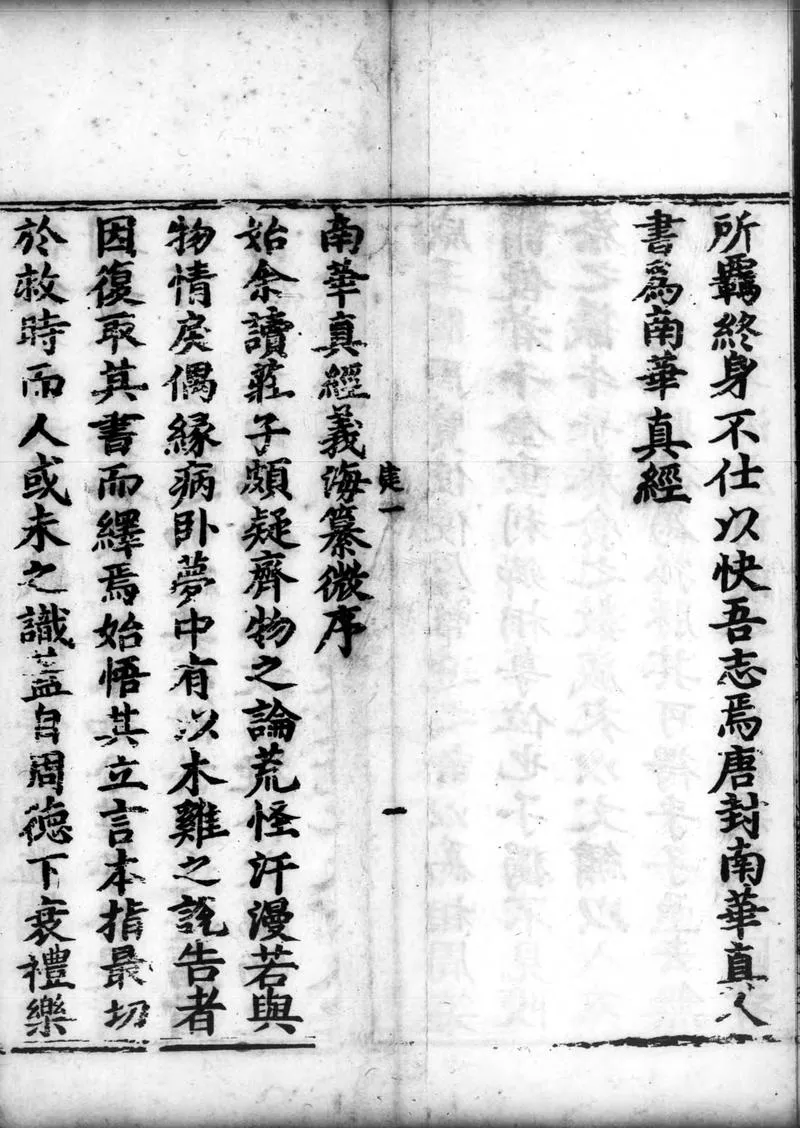 所羈終身不仕以快吾志焉唐封南華真人
書爲南華真經
南華真經義海纂微序
始余讀莊子頗疑齊物之論荒怪汗漫若與
物情戾偶緣病卧夢中有以木雞之說告者
因復取其書而繹焉始悟其立言本指最切
於救時而人或未之識蓋自周德下衰禮樂
一
一